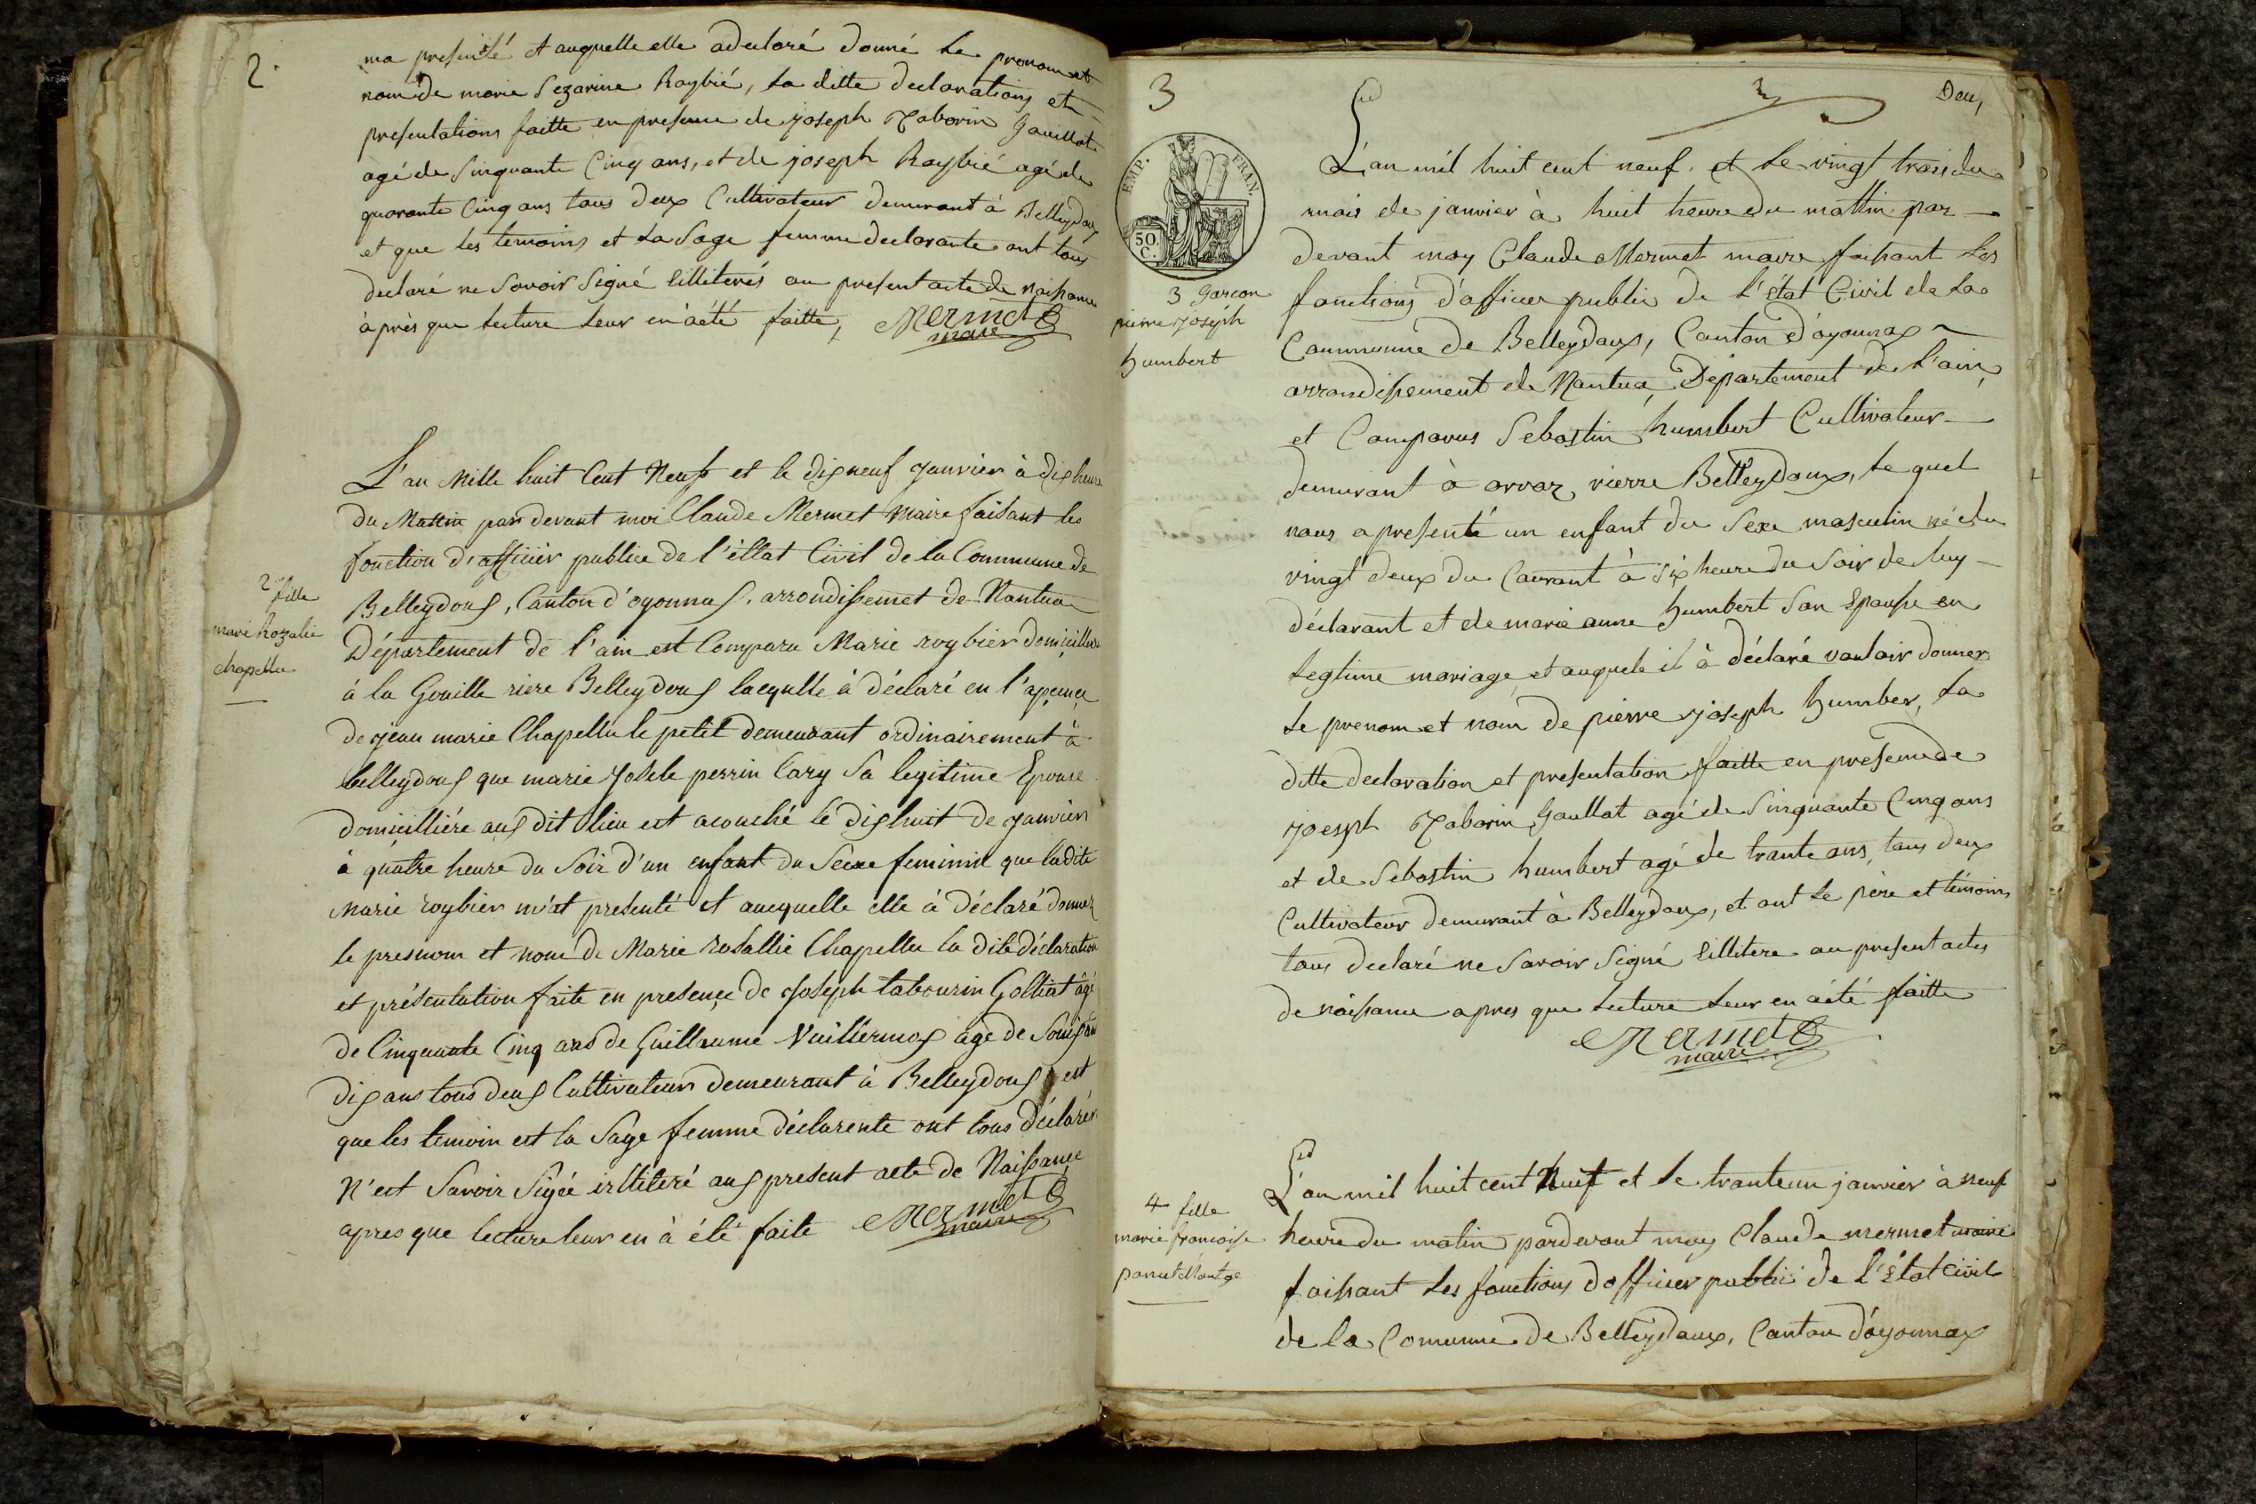 2.
ma presenté et auquelle elle adeclaré donné le prenom et
nom de marie Sezarine Raybié, la ditte declarations et
presentations faitte en presence de joseph Taborin Gaullat
agé de Sinquante Cinq ans, et de joseph Raybié agé de
quarante Cinq ans tous deux Cultivateur demurant à Belleydoux
et que les temoins et la Sage femme declarante ont tous
declaré ne Savoir Signé Lilliterés au present acte de naissance
àprès que lecture leur en àété faitte, Mermet
maire
2 fille
marie Rozalie
chapellu
L'an Mille huit Cent Neuf et le dixneuf Janvier à dix heure
du Mattin par devant moi Claude Mermet Maire faisant les
fonction d'afficier publice de l'éttat Civil de la Commune de
Belleydous, Canton d'oyonnas, arrondissemet de Nantua
Département de l'ain est Comparu Marie roybier domicilliere
à la Gouille riere Belleydous laequlle à déclaré en l'apcence
de jean marie Chapellu le petit demeurant ordinairement à
belleydous que marie Josele perrin Cary Sa legitime Epouse
domicilliére aus dit lieu est acouché le dishuit de janvier
à quatre heure du Soir d'un enfant du Sexe feminin que ladite
Marie roybier m'at presenté et aucquelle elle à déclaré donner
le presnom et nom de Marie rosallie Chapellu la dite déclaration
et présentation faite en presençe de Joseph tabourin Golliat âgé
de Cinquante Cinq ans de Guillaume Vuilliermos âgé de Soisante
dix ans tous deus Cultivateur demeurant à Belleydous est
que les temoin est la Sage femme déclarente ont tous déclarér
N'est Savoir Sigée irlliteré aus present acte de Naissance
apres que lecture leur en à été faite Mermet
maire
3
Deux
EMP. FRAN.
50.
C.
3 Garcon
pierre joseph
humbert
L'an mil huit cent neuf. et le vingt trois du
mois de janvier à huit heure du mattin par
devant moy Claude Mermet maire faisant les
fonctions d'afficier public de l'état Civil de la
Commune de Belleydoux, Canton d'oyonnax
arrondissement de Nantua, Département de L'ain,
et Comparus Sebastin humbert Cultivateur
demurant à orvaz rierre Belleydoux, le quel
nous a presenté un enfant du Sexe masculin né du
vingt deux du Courant à Six heure du Soir de luy
déclarant et de marie anne humbert Son Epouse en
legtime mariage et auquele il à déclaré vouloir donner
le prenom et nom de pierre joseph humber, la
ditte declaration et presentation faitte en presence de
joesph Taborin Gaullat agé de Sinquante Cinq ans
et de Sebastin humbert agé de trante ans, tous deux
Cultivateur demurant à Belleydoux, et ont le père et témoins
tous declaré ne Savoir Signé Lillitere au present actes
de naissance apres que lecture leur en àété faitte
Mermet
maire
4 fille
marie francoise
L'an mil huit cent Nuif et le tranteun janvier à neuf
heure du matin pardevant moy Claude mermet maire
faisant les fonctions d'officier public de l'état civil
de la Comunne de Belleydoux, Canton d'oyonnax